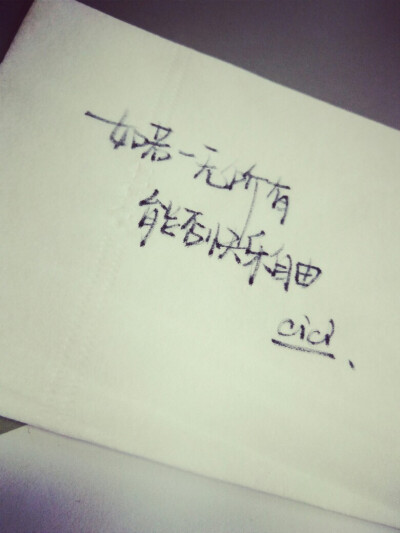 如果一无所有
能否快乐自由
cici、